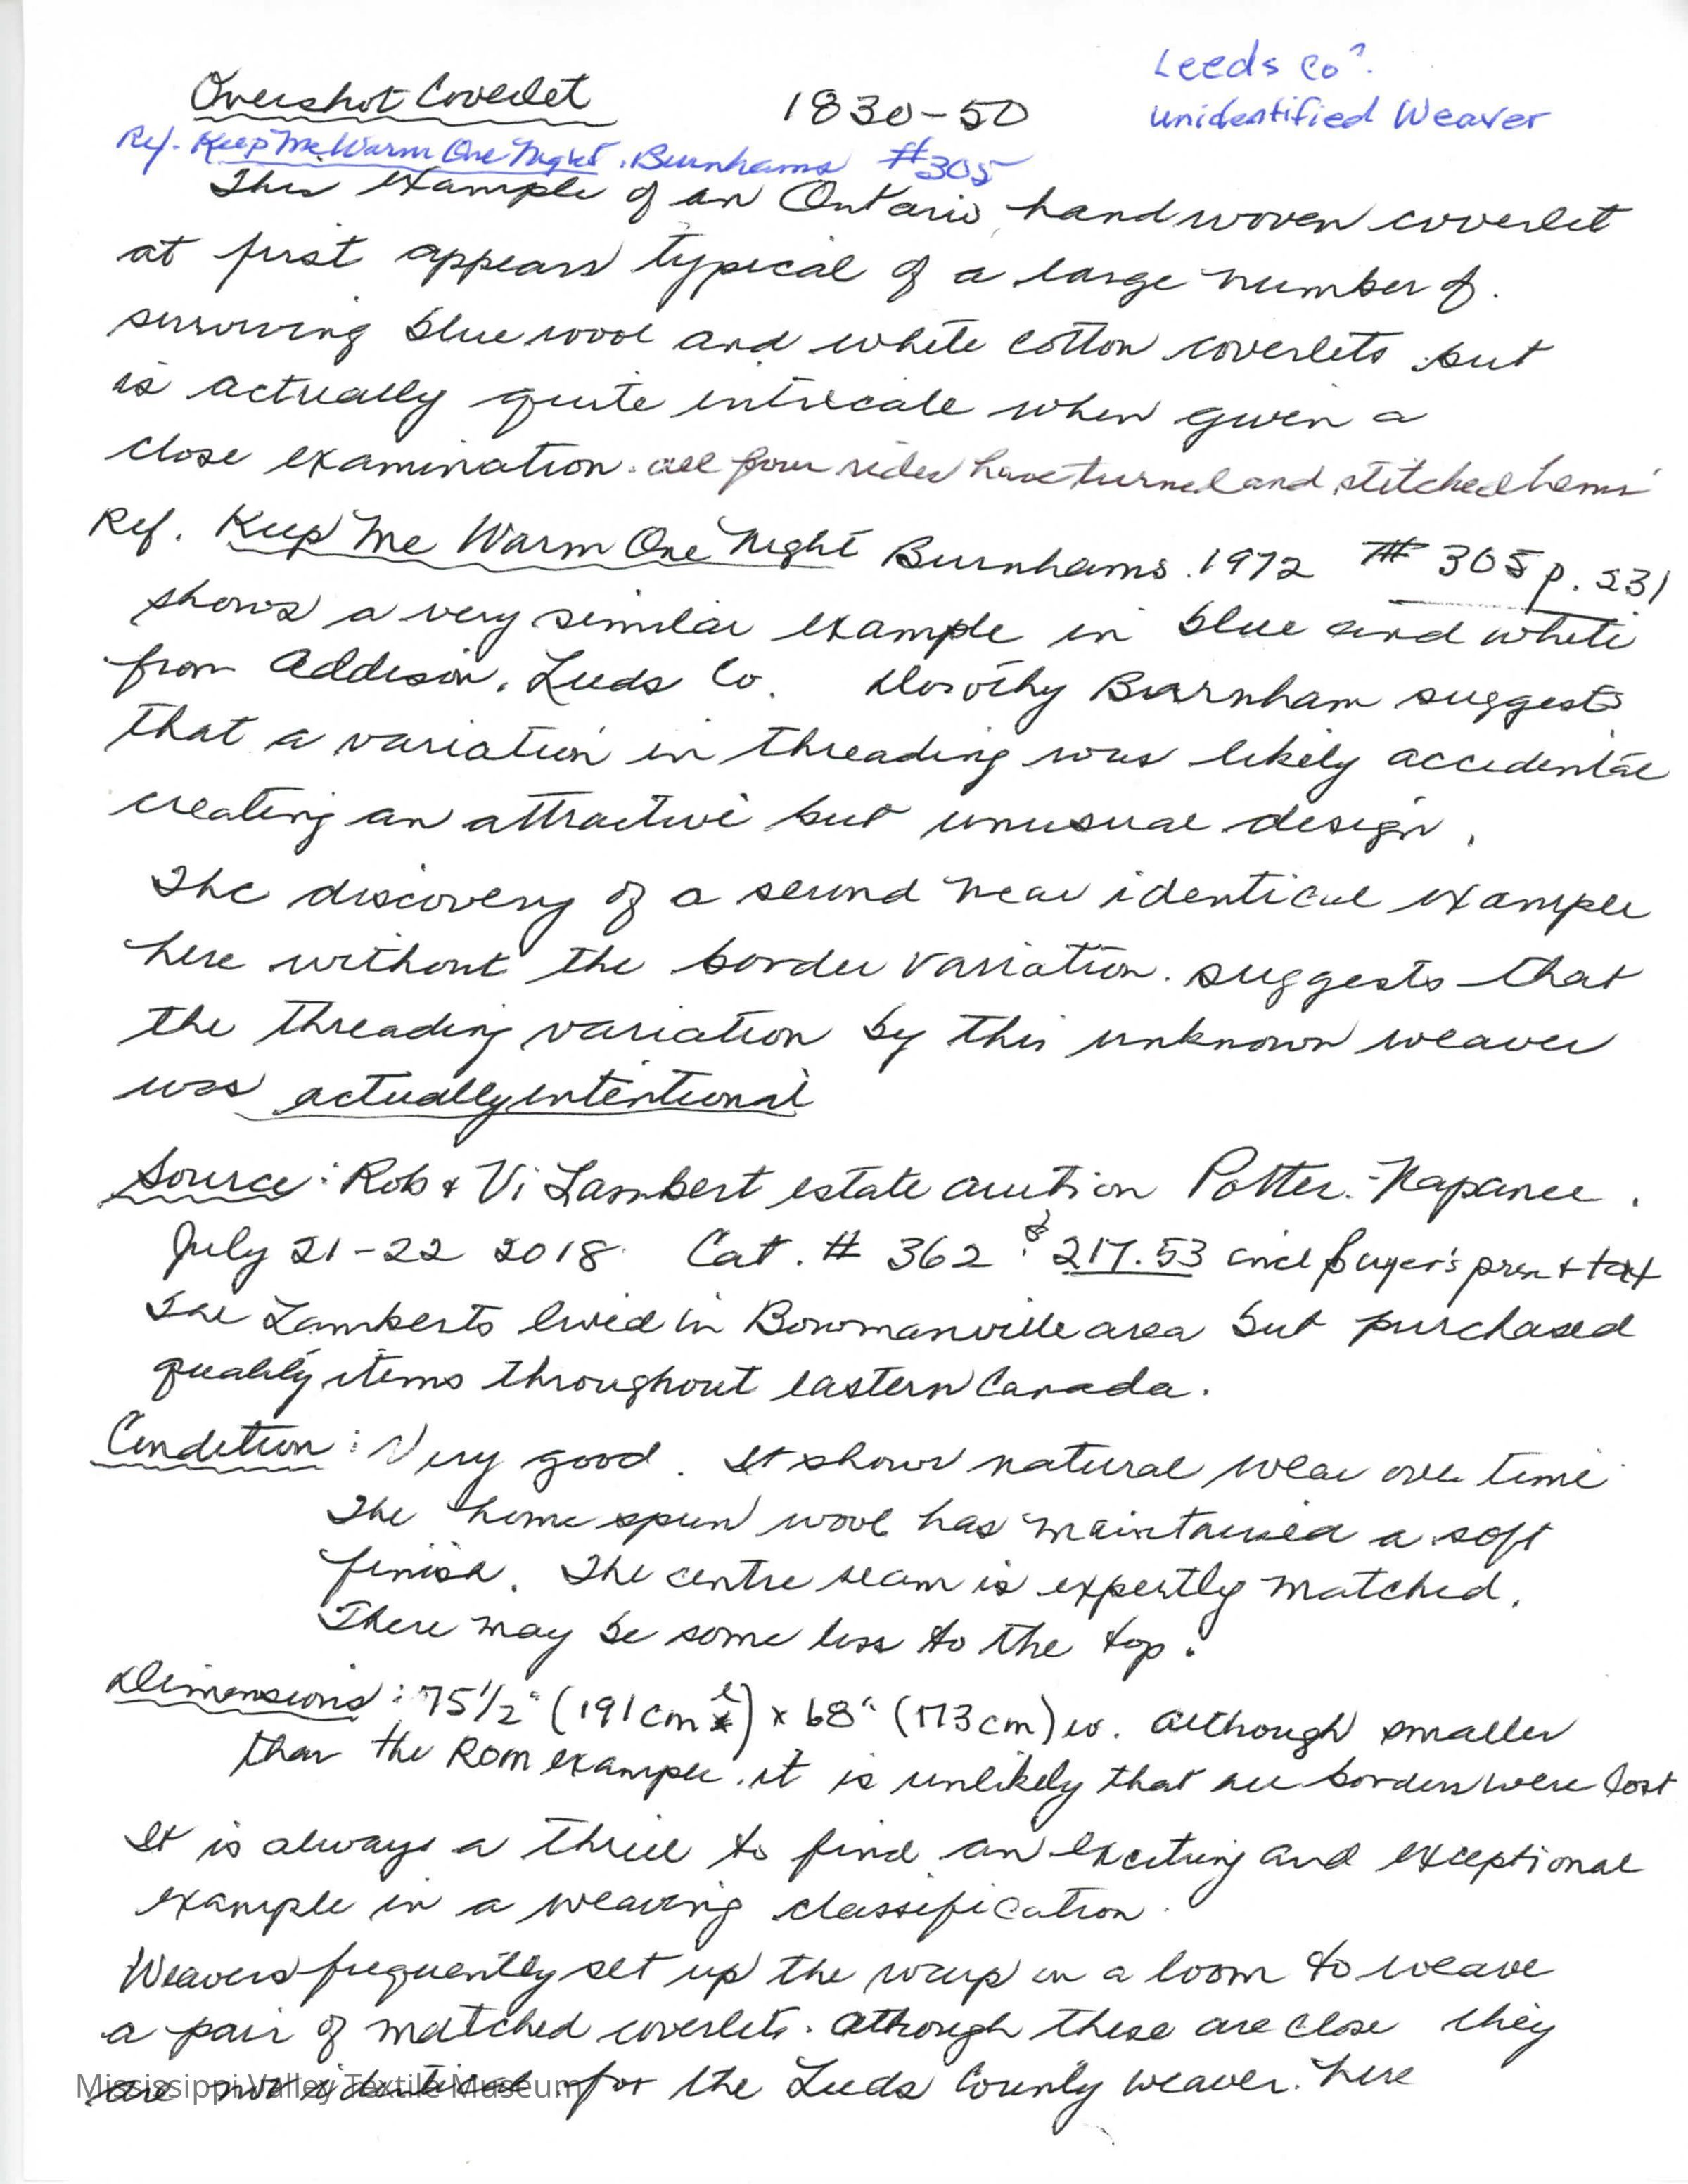 Overshot Coverlet 1830-50 Leeds Co?
unidentified Weaver
Ref. Keep Me Warm One Night. Burnhams #305
This example of an Ontario hand woven coverlet
at first appears typical of a large number of.
surviving blue wool and white cotton coverlets but
is actually quite intricate when given a
close examination. all four sides have turned and stitched hems
Ref. Keep Me Warm One Night Burnhams. 1972 # 305 p. 231
shows a very similar example in blue and white
from Addison, Leeds Co. Dorothy Burnham suggests
that a variation in threading was likely accidental
creating an attractive but unusual design.
The discovery of a second near identical example
here without the border variation. suggests that
the threading variation by this unknown weaver
was actually intentional
Source: Rob & Vi Lambert estate auction Potter.-Napanee.
July 21-22 2018 Cat. # 362 $217.53 incl buyer's prem + tax
The Lamberts lived in Bowmanville area but purchased
quality items throughout eastern Canada.
Condition: Very good. It shows natural wear over time
The home spun wool has maintained a soft
finish. The centre seam is expertly matched.
There may be some loss to the top.
Dimensions: 75 1/2" (191 cm l) x 68" (173 cm) w. Although smaller
than the ROM example. it is unlikely that all borders were lost
It is always a thrill to find an exciting and exceptional
example in a weaving classification.
Weavers frequently set up the warp in a loom to weave
a pair of matched coverlets. Although these are close they
are not identical for the Leeds County weaver. here
Mississippi Valley Textile Museum